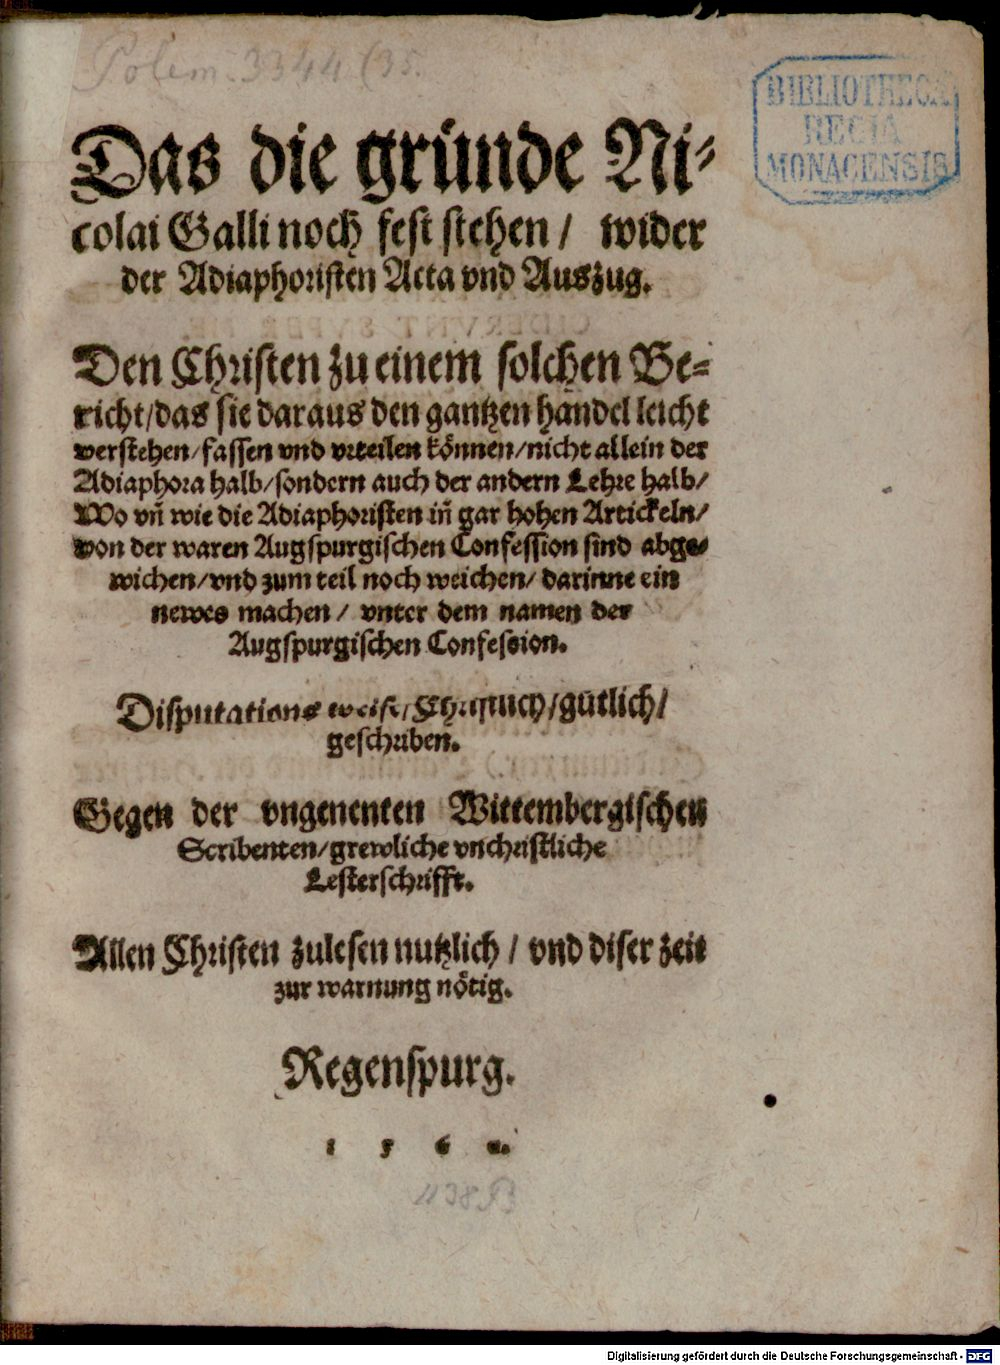 Polem. 3344 (35.
BIBLIOTHECA
REGIA
MONACENSIS
Das die gründe Ni-
colai Galli noch fest stehen / wider
der Adiaphoristen Acta vnd Auszug.
Den Christen zu einem solchen Be-
richt / das sie daraus den gantzen handel leicht
verstehen / fassen vnd vrteilen können / nicht allein der
Adiaphora halb / sondern auch der andern Lehre halb /
Wo vñ wie die Adiaphoristen iñ gar hohen Artickeln /
von der waren Augspurgischen Confession sind abge-
wichen / vnd zum teil noch weichen / darinne ein
newes machen / vnter dem namen der
Augspurgischen Confession.
Disputations weise / Christlich / gütlich /
geschriben.
Gegen der vngenenten Wittembergischen
Scribenten / grewliche vnchristliche
Lesterschrifft.
Allen Christen zulesen nutzlich / vnd diser zeit
zur warnung nötig.
Regenspurg.
1 5 6
Digitalisierung gefördert durch die Deutsche Forschungsgemeinschaft - DFG